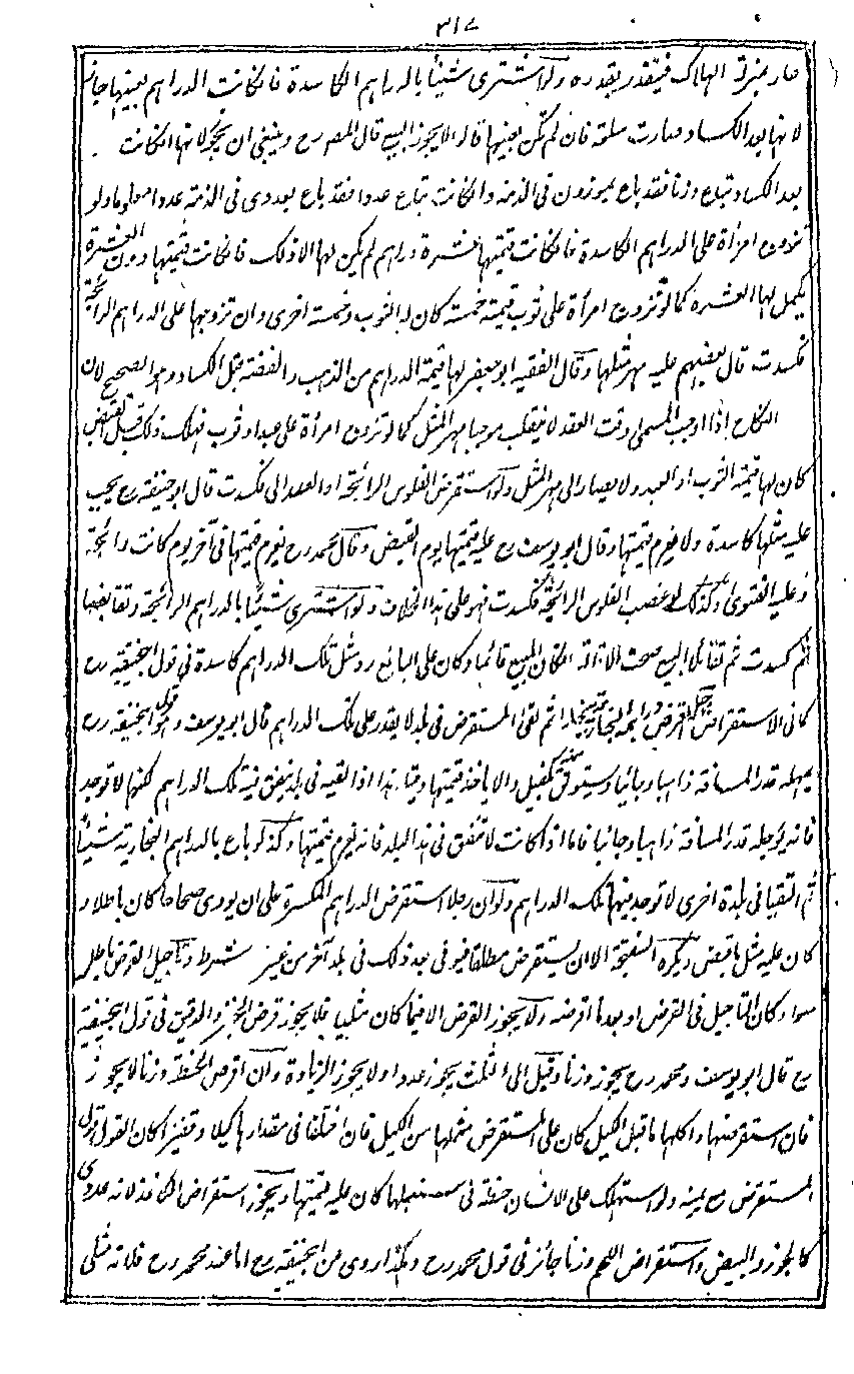 ٣١٧
صار بمنزلة الهالك فيتقدر بقدره ولو اشترى شيئا بالدراهم الكاسدة فان كانت الدراهم بعينها جاز
لانها بعد الكساد صارت سلعة فان لم تكن بعينها قالوا لا يجوز البيع قال المصنف رح وينبغي ان يجوز لانها ان كانت
بعد الكساد تباع وزنا فقد باع بموزون في الذمة وان كانت تباع عددا فقد باع بعددي في الذمة عددا معلوما ولو
تزوج امرأة على الدراهم الكاسدة فان كانت قيمتها عشرة دراهم لم يكن لها الا ذلك فان كانت قيمتها دون العشرة
يكمل لها العشرة كما لو تزوج امرأة على ثوب قيمته خمسة كان لها الثوب وخمسة اخرى وان تزوجها على الدراهم الرائجة
فكسدت قال بعضهم عليه مهر مثلها وقال الفقيه ابو جعفر لها قيمة الدراهم من الذهب والفضة قبل الكساد وهو الصحيح لان
النكاح اذا اوجب المسمى وقت العقد لا ينقلب موجبا مهر المثل كما لو تزوج امرأة على عبد او ثوب فهلك ذلك قبل القبض
كان لها قيمة الثوب او العبد ولا يصار الى مهر المثل ولو استقرض الفلوس الرائجة او العدالى فكسدت قال ابو حنيفة رح يجب
عليه مثلها كاسدة ولا يغرم قيمتها وقال ابو يوسف رح عليه قيمتها يوم القبض وقال محمد رح يغرم قيمتها في آخر يوم كانت رائجة
وعليه الفتوى وكذلك لو غصب الفلوس الرائجة فكسدت فهو على هذا الخلاف ولو اشترى شيئا بالدراهم الرائجة وتقابضا
ثم كسدت ثم تقايلا البيع صحت الاقالة ان كان المبيع قائما وكان على البائع رد مثل تلك الدراهم كاسدة في قول ابي حنيفة رح
كما في الاستقراض رجل اقرض دراهم بخارية ببخارا ثم لقى المستقرض في بلد لا يقدر على تلك الدراهم قال ابو يوسف وهو قول ابي حنيفة رح
يمهله قدر المسافة ذاهبا وجائيا ويستوثق منه بكفيل والا ياخذ قيمتها هذا اذا لقيه في بلد ينفق فيه تلك الدراهم لكنها لا توجد
فانه يؤجله قدر المسافة ذاهبا وجائيا فاما اذا كانت لا تنفق في هذا البلد فانه يغرم قيمتها وكذا لو باع بالدراهم البخارية شيئا
ثم التقيا في بلدة اخرى لا توجد فيها تلك الدراهم ولو ان رجلا استقرض الدراهم المكسرة على ان يودى صحاحا كان باطلا و
كان عليه مثل ما قبض ويكره السفتجة الا ان يستقرض مطلقا فيوفي بعد ذلك في بلد آخر من غير شرط وتاجيل القرض باطل
سواء كان التاجيل في القرض او بعد ما اقرضه ولا يجوز القرض الا فيما كان مثليا فلا يجوز قرض الخبز والدقيق في قول ابي حنيفة
رح قال ابو يوسف ومحمد رح يجوز وزنا وقيل الى الثلث يجوز عددا ولا يجوز الزيادة وان اقرض الحنطة وزنا لا يجوز
فان استقرضها واكلها ما قبل الكيل كان على المستقرض مثلها من الكيل فان اختلفا في مقدارها كيلا وقفيزا كان القول قول
المستقرض مع يمينه ولو استهلك على الانسان حنطة في سنبلها كان عليه قيمتها ويجوز استقراض الكاغذ لانه عددى
كالجوز والبيض واستقراض اللحم وزنا جائز في قول محمد رح وهكذا روى عن ابي حنيفة رح اما عند محمد رح فلانه مثلى